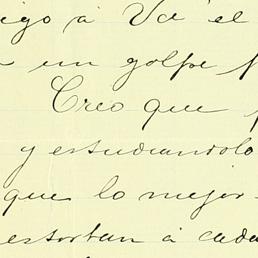 igo á Vd el
un golpe
Creo que
y estudiandolo
que lo mejor
estortan á cada